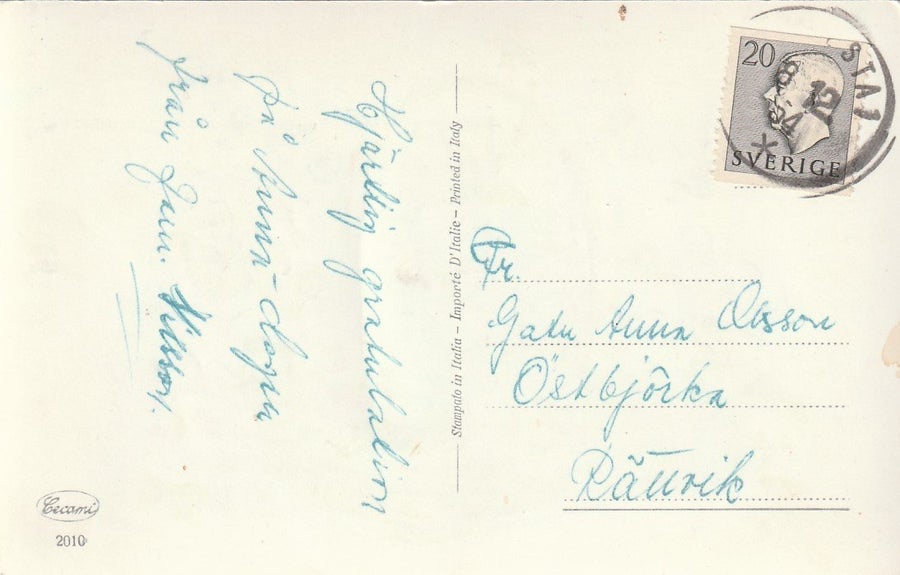 Hjärtlig gratulation
på Anna-dagen
från fam. Nilsson.
Stampato in Italia - Importé D'Italie - Printed in Italy
20
SVERIGE
8 12
54
Fr.
Gatu Anna Olsson
Östbjörka
Rättvik
Cecami
2010